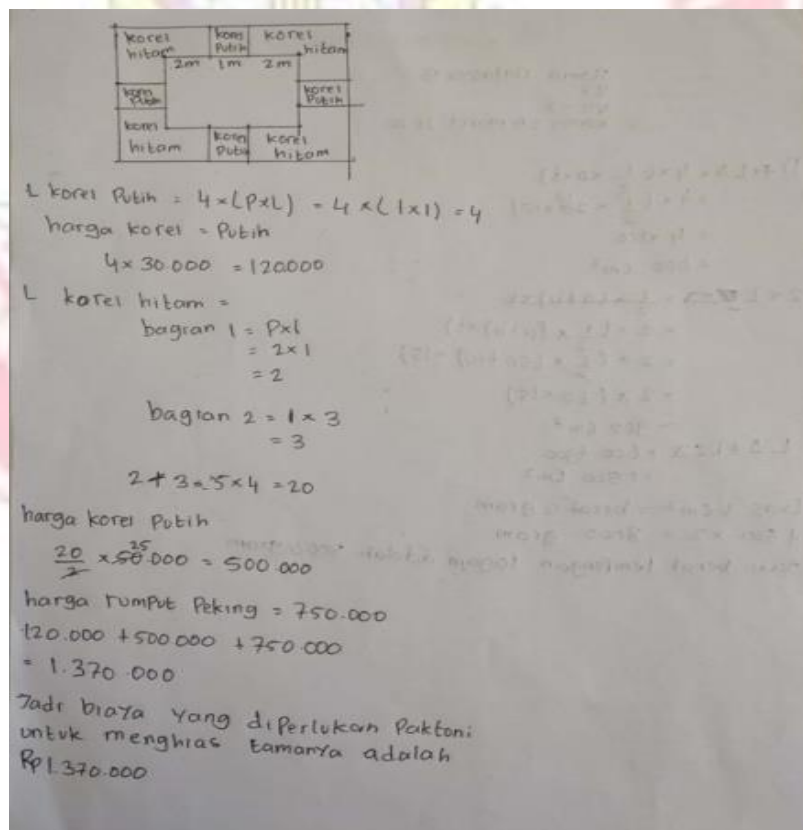 korel hitam
korel Putih
korel hitam
2m 1m 2m
korel Putih
korel Putih
korel hitam
korel Putih
korel hitam
L korel Putih = 4 × (P×L) = 4 × (1×1) = 4
harga korel = Putih
4 × 30.000 = 120.000
L korel hitam =
bagian 1 = P×l
= 2×1
= 2
bagian 2 = 1 × 3
= 3
2 + 3 = 5 × 4 = 20
harga korel Putih
20/2 × 50.000 25 = 500.000
harga rumput Peking = 750.000
120.000 + 500.000 + 750.000
= 1.370.000
Jadi biaya yang diperlukan Paktoni
untuk menghias tamanya adalah
Rp 1.370.000